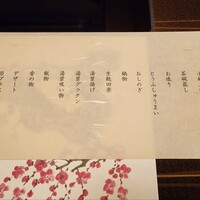 茶碗蒸し
お造り
とうふしゅうまい
おしのぎ
鍋物
生麩田楽
湯葉揚げ
湯葉グラタン
湯葉吸い物
御飯
香の物
デザート